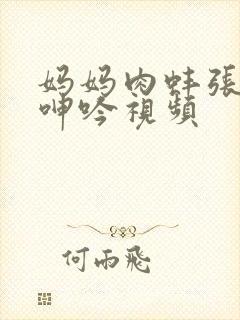 妈妈肉蚌張
呻吟視頻
何雨飛